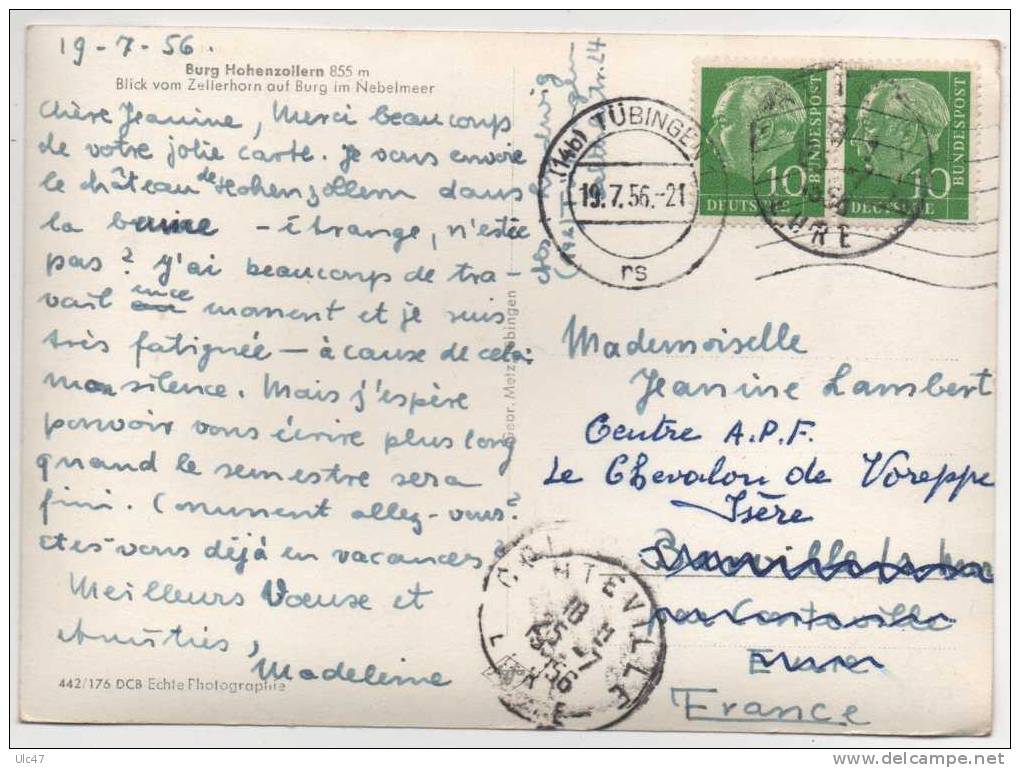 19-7-56.
Burg Hohenzollern 855 m
Blick vom Zellerhorn auf Burg im Nebelmeer
Chère Jeanine, Merci beaucoup
de votre jolie carte. Je vous envoie
le château de Hohenzollern dans
la brume - étrange, n'est ce
pas? J'ai beaucoup de tra-
vail en ce moment et je suis
très fatiguée - à cause de cela
mon silence. Mais j'espère
pouvoir vous écrire plus long
quand le semestre sera
fini. Comment allez-vous?
Etes-vous déjà en vacances?
Meilleurs Voeuse et
Amitiés,
Madeleine
442/176 DCB Echte Photographie
Gebr. Metz, Tübingen
(14b) TÜBINGEN
19.7.56.-21
rs
10
DEUTSCHE
BUNDESPOST
10
DEUTSCHE
BUNDESPOST
EURE
Mademoiselle
Jeanine Lambert
Centre A.P.F.
Le Chevalon de Voreppe
Isère
par Conteville
Eure
France
CONTEVILLE
18 H
25-7
1956
EURE
Ulc47
delcampe.net